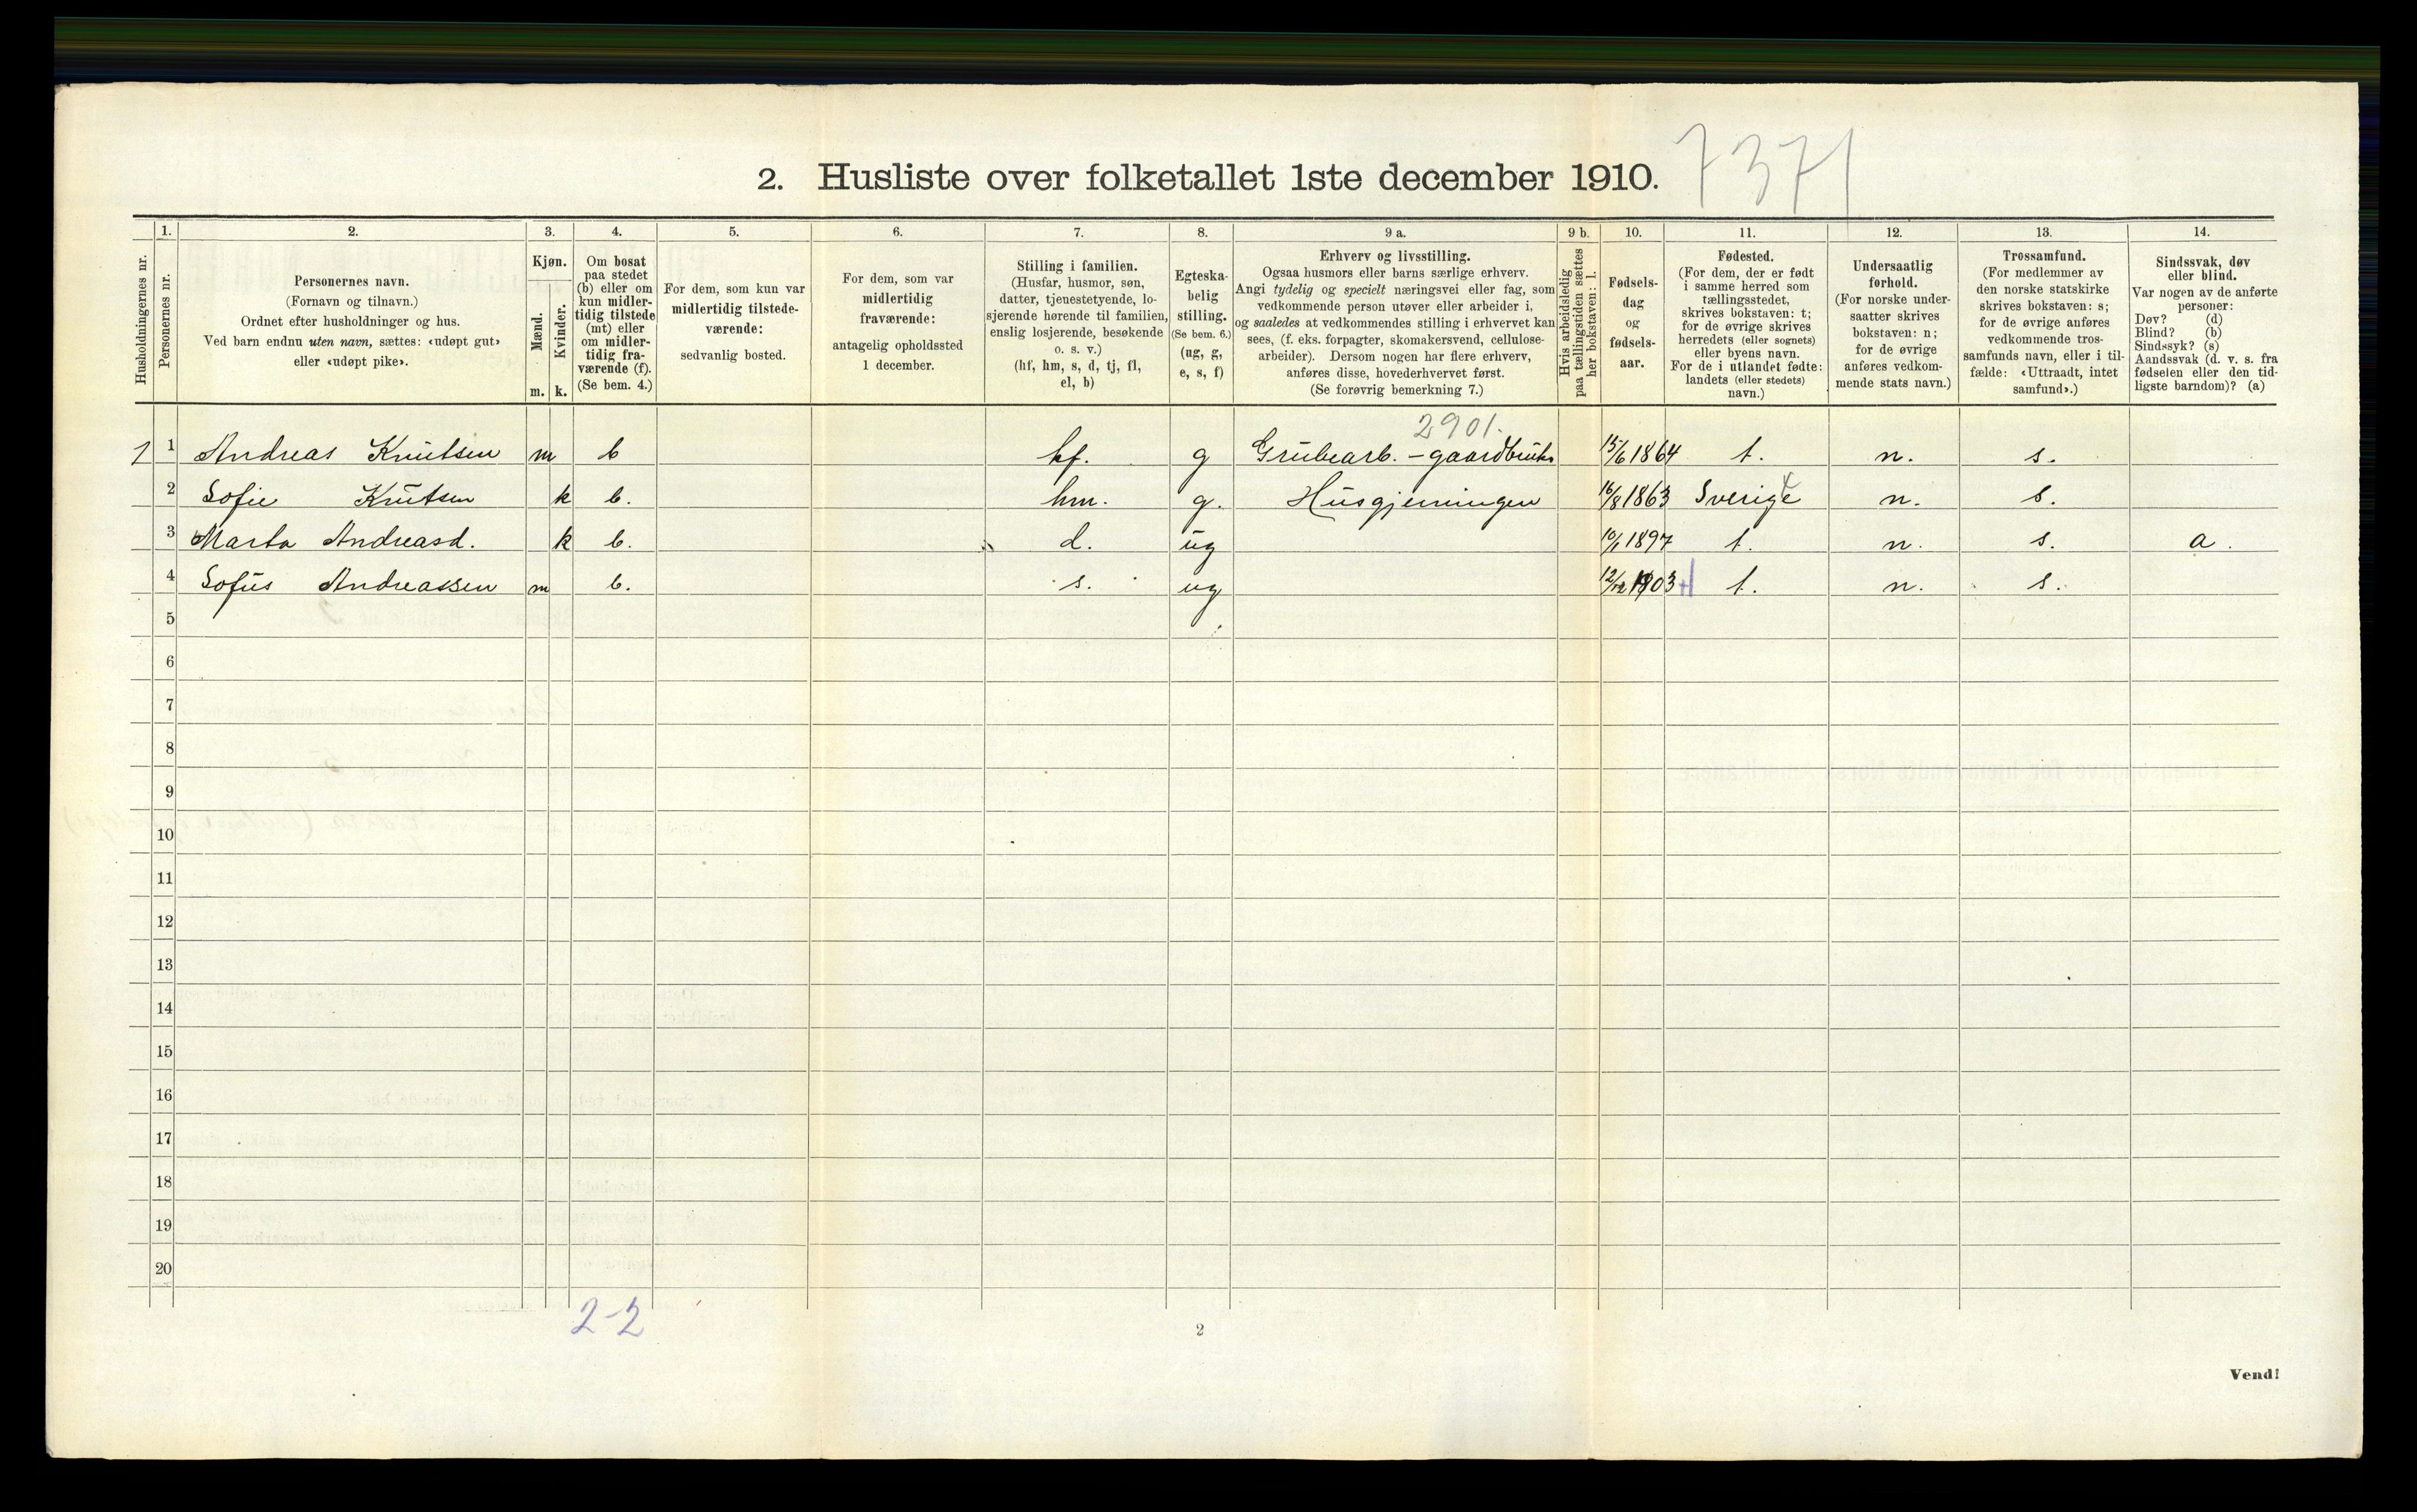 2. Husliste over folketallet 1ste december 1910. 7371
Husholdningernes nr.
1.
Personernes nr.
2.
Personernes navn.
(Fornavn og tilnavn.)
Ordnet efter husholdninger og hus.
Ved barn endnu uten navn, sættes: «udøpt gut»
eller «udøpt pike».
3.
Kjøn.
Mænd.
Kvinder.
m. k.
4.
Om bosat
paa stedet
(b) eller om
kun midler-
tidig tilstede
(mt) eller
om midler-
tidig fra-
værende (f).
(Se bem. 4.)
5.
For dem, som kun var
midlertidig tilstede-
værende:
sedvanlig bosted.
6.
For dem, som var
midlertidig
fraværende:
antagelig opholdssted
1 december.
7.
Stilling i familien.
(Husfar, husmor, søn,
datter, tjenestetyende, lo-
sjerende hørende til familien,
enslig losjerende, besøkende
o. s. v.)
(hf, hm, s, d, tj, fl,
el, b)
8.
Egteska-
belig
stilling.
(Se bem. 6.)
(ug, g,
e, s, f)
9 a.
Erhverv og livsstilling.
Ogsaa husmors eller barns særlige erhverv.
Angi tydelig og specielt næringsvei eller fag, som
vedkommende person utøver eller arbeider i,
og saaledes at vedkommendes stilling i erhvervet kan
sees, (f. eks. forpagter, skomakersvend, cellulose-
arbeider). Dersom nogen har flere erhverv,
anføres disse, hovederhvervet først.
(Se forøvrig bemerkning 7.)
9 b.
Hvis arbeidsledig
paa tællingstiden sættes
her bokstaven: l.
10.
Fødsels-
dag
og
fødsels-
aar.
11.
Fødested.
(For dem, der er født
i samme herred som
tællingsstedet,
skrives bokstaven: t;
for de øvrige skrives
herredets (eller sognets)
eller byens navn.
For de i utlandet fødte:
landets (eller stedets)
navn.)
12.
Undersaatlig
forhold.
(For norske under-
saatter skrives
bokstaven: n;
for de øvrige
anføres vedkom-
mende stats navn.)
13.
Trossamfund.
(For medlemmer av
den norske statskirke
skrives bokstaven: s;
for de øvrige anføres
vedkommende tros-
samfunds navn, eller i til-
fælde: «Uttraadt, intet
samfund».)
14.
Sindssvak, døv
eller blind.
Var nogen av de anførte
personer:
Døv? (d)
Blind? (b)
Sindssyk? (s)
Aandssvak (d. v. s. fra
fødselen eller den tid-
ligste barndom)? (a)
2901.
1 1 Andreas Knutsen m b hf. g Grubearb. - gaardbruker 15/6 1864 t. n. s.
2 Sofie Knutsen k b. hm. g. Husgjerningen 16/8 1863 Sverige n. s.
3 Marta Andreasd. k b. d. ug 10/1 1897 t. n. s. a.
4 Sofus Andreassen m b. s. ug 12/12 1903 t. n. s.
5
6
7
8
9
10
11
12
13
14
15
16
17
18
19
20
2-2
2
Vend!